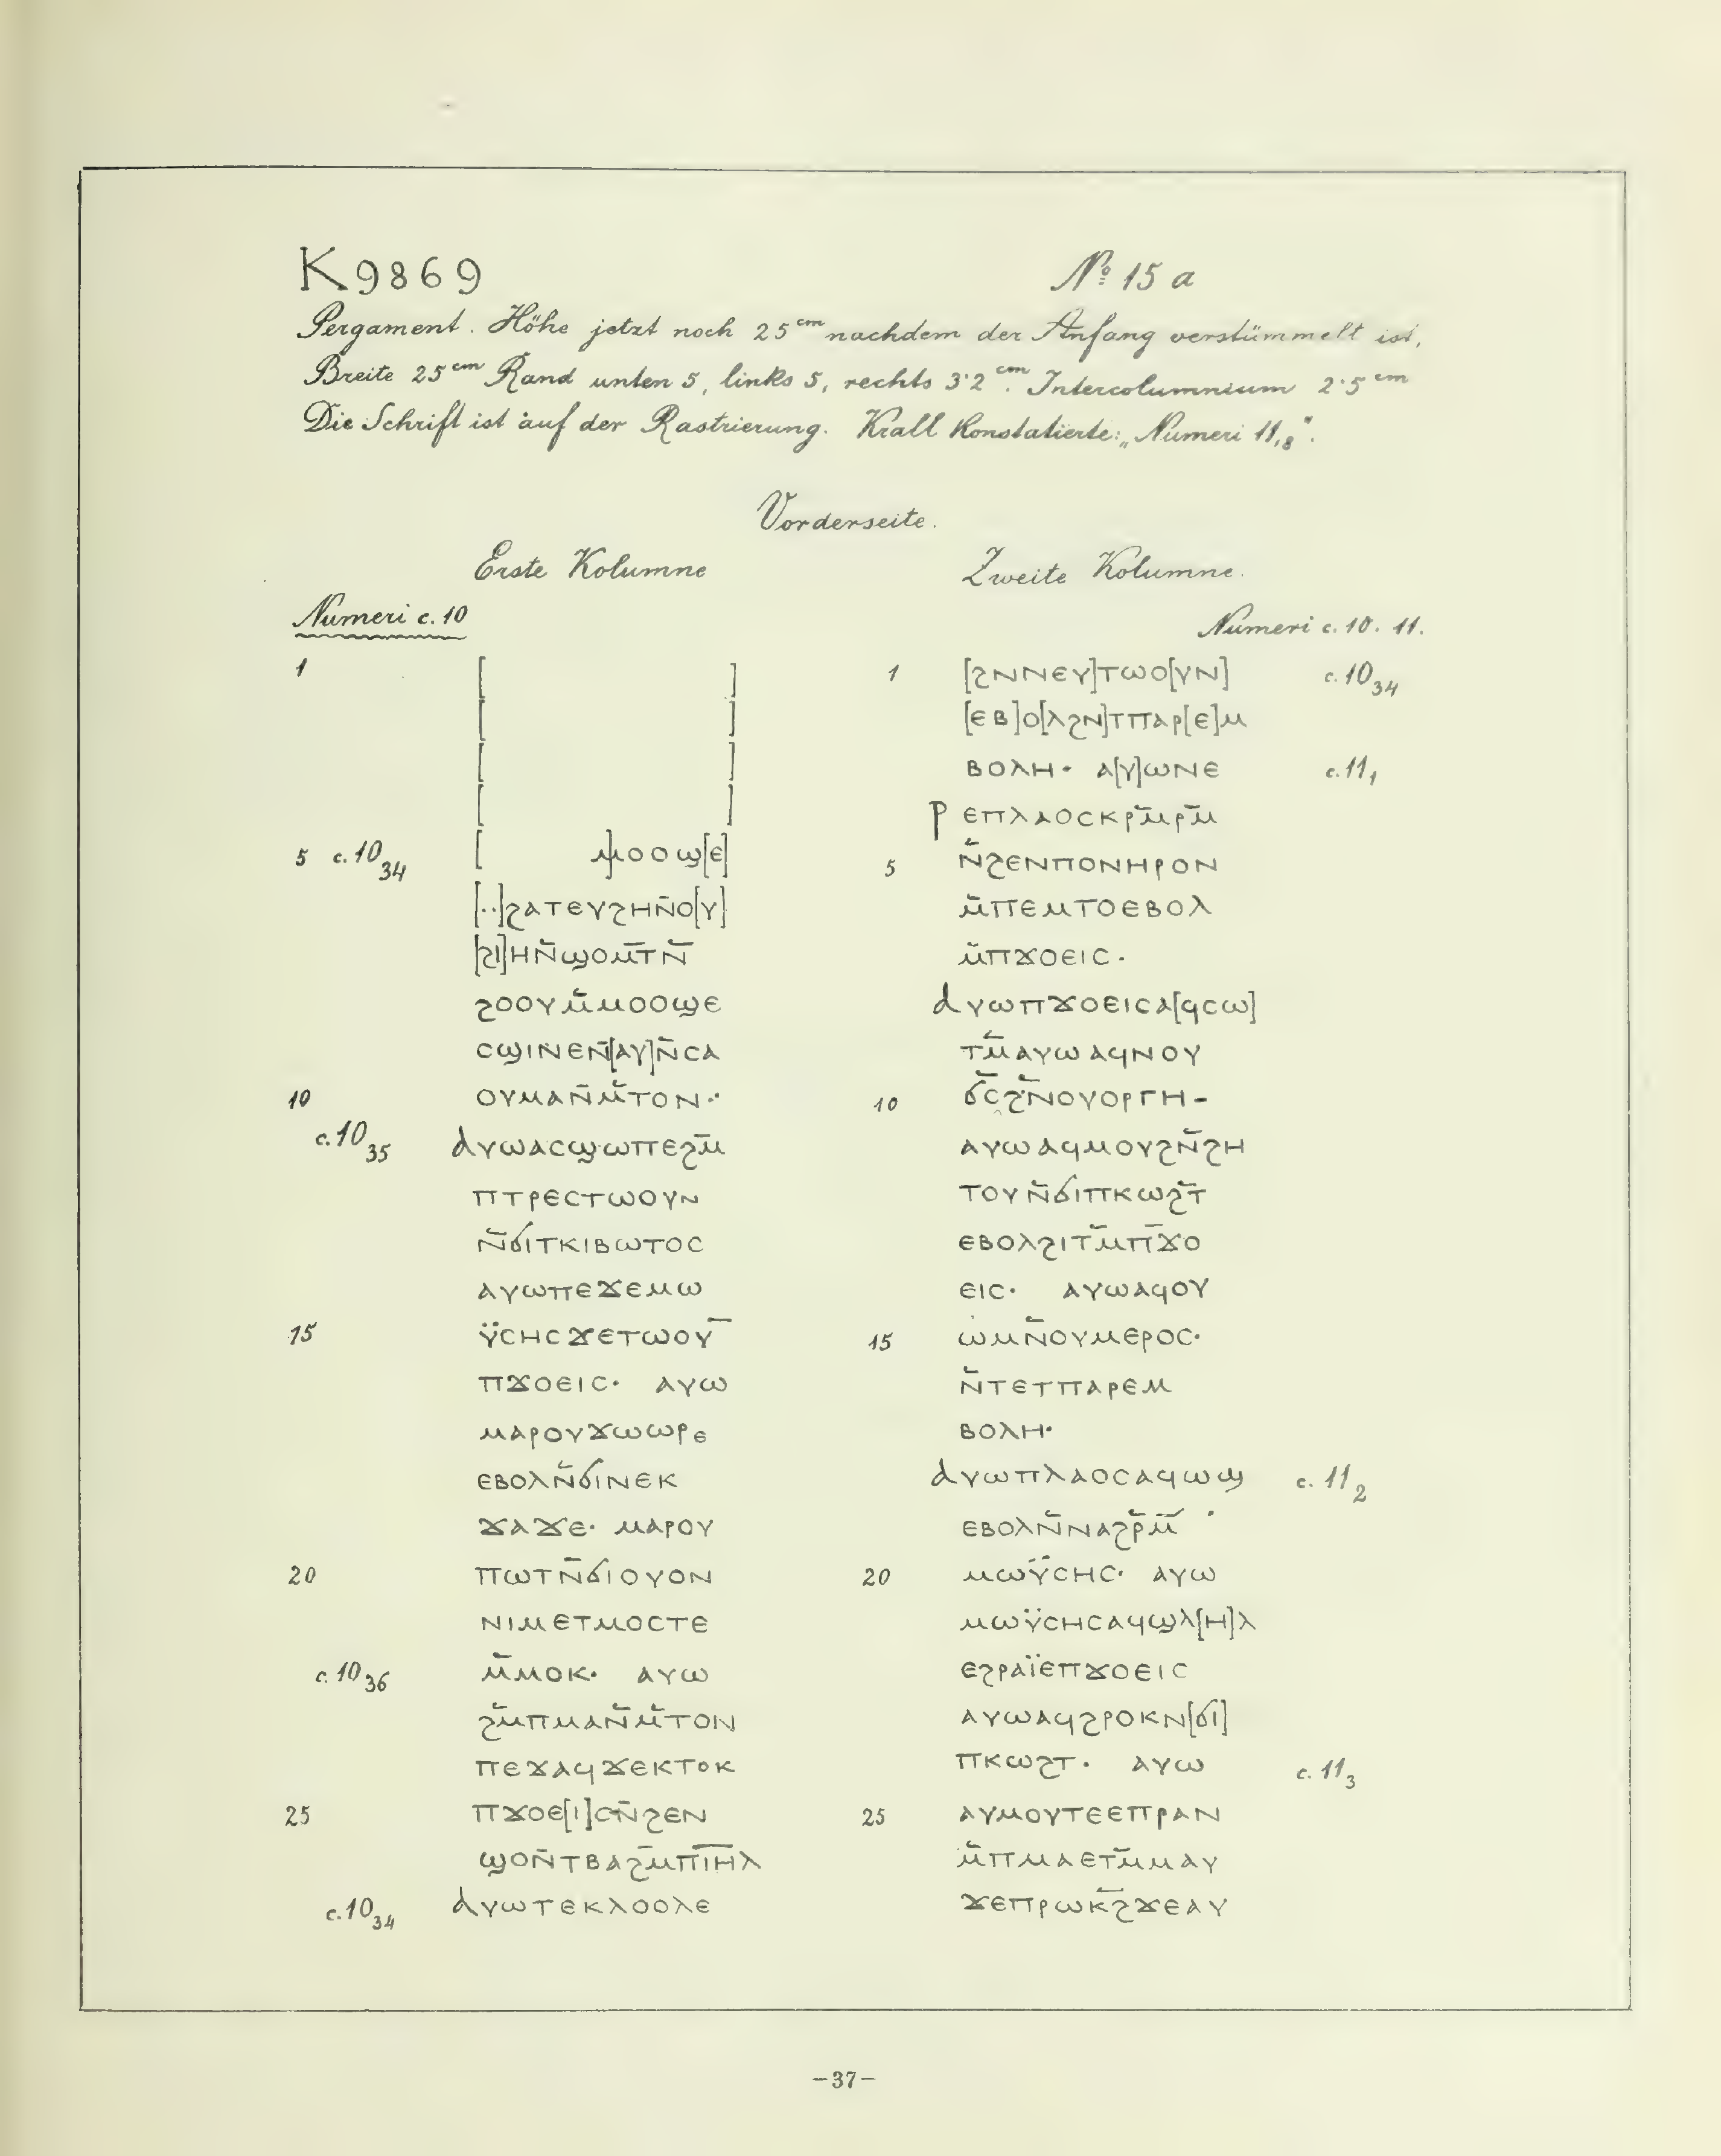 K 9869
№ 15 a
Pergament. Höhe jetzt noch 25 cm nachdem der Anfang verstümmelt ist,
Breite 25 cm Rand unten 5, links 5, rechts 3·2 cm. Intercolumnium 2·5 cm
Die Schrift ist auf der Rastrierung. Krall konstatierte: „Numeri 11,8".
Vorderseite.
Erste Kolumne
Numeri c. 10
1 [ ]
[ ]
[ ]
[ ]
5 c. 10 34 [ ⲙ]ⲟⲟϣ[ⲉ]
[··]ϩⲁⲧⲉⲩϩⲏⲛ̄ⲟ[ⲩ]
[ϩⲓ]ⲏⲛ̄ϣⲟⲙ̄ⲧⲛ̄
ϩⲟⲟⲩⲙ̄ⲙⲟⲟϣⲉ
ⲥϣⲓⲛⲉⲛ̄[ⲁⲩ]ⲛ̄ⲥⲁ
10 ⲟⲩⲙⲁⲛ̄ⲙ̄ⲧⲟⲛ·
c. 10 35 ⲁⲩⲱⲁⲥϣⲱⲡⲉϩⲙ̄
ⲡⲧⲣⲉⲥⲧⲱⲟⲩⲛ
ⲛ̄ϭⲓⲧⲕⲓⲃⲱⲧⲟⲥ
ⲁⲩⲱⲡⲉϫⲉⲙⲱ
15 ⲩ̈ⲥⲏⲥϫⲉⲧⲱⲟⲩ̅
ⲡϫⲟⲉⲓⲥ· ⲁⲩⲱ
ⲙⲁⲣⲟⲩϫⲱⲱⲣⲉ
ⲉⲃⲟⲗⲛ̄ϭⲓⲛⲉⲕ
ϫⲁϫⲉ· ⲙⲁⲣⲟⲩ
20 ⲡⲱⲧⲛ̄ϭⲓⲟⲩⲟⲛ
ⲛⲓⲙⲉⲧⲙⲟⲥⲧⲉ
c. 10 36 ⲙ̄ⲙⲟⲕ· ⲁⲩⲱ
ϩⲙ̄ⲡⲙⲁⲛ̄ⲙ̄ⲧⲟⲛ
ⲡⲉϫⲁϥϫⲉⲕⲧⲟⲕ
25 ⲡϫⲟⲉ[ⲓ]ⲥⲛ̄ϩⲉⲛ
ϣⲟⲛ̄ⲧⲃⲁϩⲙ̄ⲡⲓ̅ⲏ̅ⲗ
c. 10 34 ⲁⲩⲱⲧⲉⲕⲗⲟⲟⲗⲉ
Zweite Kolumne.
Numeri c. 10. 11.
1 [ϩⲛⲛⲉⲩ]ⲧⲱⲟ[ⲩⲛ] c. 10 34
[ⲉⲃ]ⲟ[ⲗϩⲛ]ⲧⲡⲁⲣ[ⲉ]ⲙ
ⲃⲟⲗⲏ· ⲁ[ⲩ]ⲱⲛⲉ c. 11 1
ⲣⲉⲡⲗⲁⲟⲥⲕⲣⲙ̄ⲣⲙ̄
5 ⲛ̄ϩⲉⲛⲡⲟⲛⲏⲣⲟⲛ
ⲙ̄ⲡⲉⲙⲧⲟⲉⲃⲟⲗ
ⲙ̄ⲡϫⲟⲉⲓⲥ·
ⲁⲩⲱⲡϫⲟⲉⲓⲥⲁ[ϥⲥⲱ]
ⲧⲙ̄ⲁⲩⲱⲁϥⲛⲟⲩ
10 ϭⲥ̄ϩⲛ̄ⲟⲩⲟⲣⲅⲏ-
ⲁⲩⲱⲁϥⲙⲟⲩϩⲛ̄ϩⲏ
ⲧⲟⲩⲛ̄ϭⲓⲡⲕⲱϩ̄ⲧ
ⲉⲃⲟⲗϩⲓⲧⲙ̄ⲡϫ̄ⲟ
ⲉⲓⲥ· ⲁⲩⲱⲁϥⲟⲩ
15 ⲱⲙⲛ̄ⲟⲩⲙⲉⲣⲟⲥ·
ⲛ̄ⲧⲉⲧⲡⲁⲣⲉⲙ
ⲃⲟⲗⲏ·
ⲁⲩⲱⲡⲗⲁⲟⲥⲁϥⲱϣ c. 11 2
ⲉⲃⲟⲗⲛ̄ⲛⲁϩⲣ̄ⲙ̄
20 ⲙⲱⲩ̈ⲥⲏⲥ· ⲁⲩⲱ
ⲙⲱⲩ̈ⲥⲏⲥⲁϥϣⲗ[ⲏ]ⲗ
ⲉϩⲣⲁⲓ̈ⲉⲡϫⲟⲉⲓⲥ
ⲁⲩⲱⲁϥϩⲣⲟⲕⲛ[ϭⲓ]
ⲡⲕⲱϩⲧ· ⲁⲩⲱ c. 11 3
25 ⲁⲩⲙⲟⲩⲧⲉⲉⲡⲣⲁⲛ
ⲙ̄ⲡⲙⲁⲉⲧⲙ̄ⲙⲁⲩ
ϫⲉⲡⲣⲱⲕϩ̄ϫⲉⲁⲩ
-37-